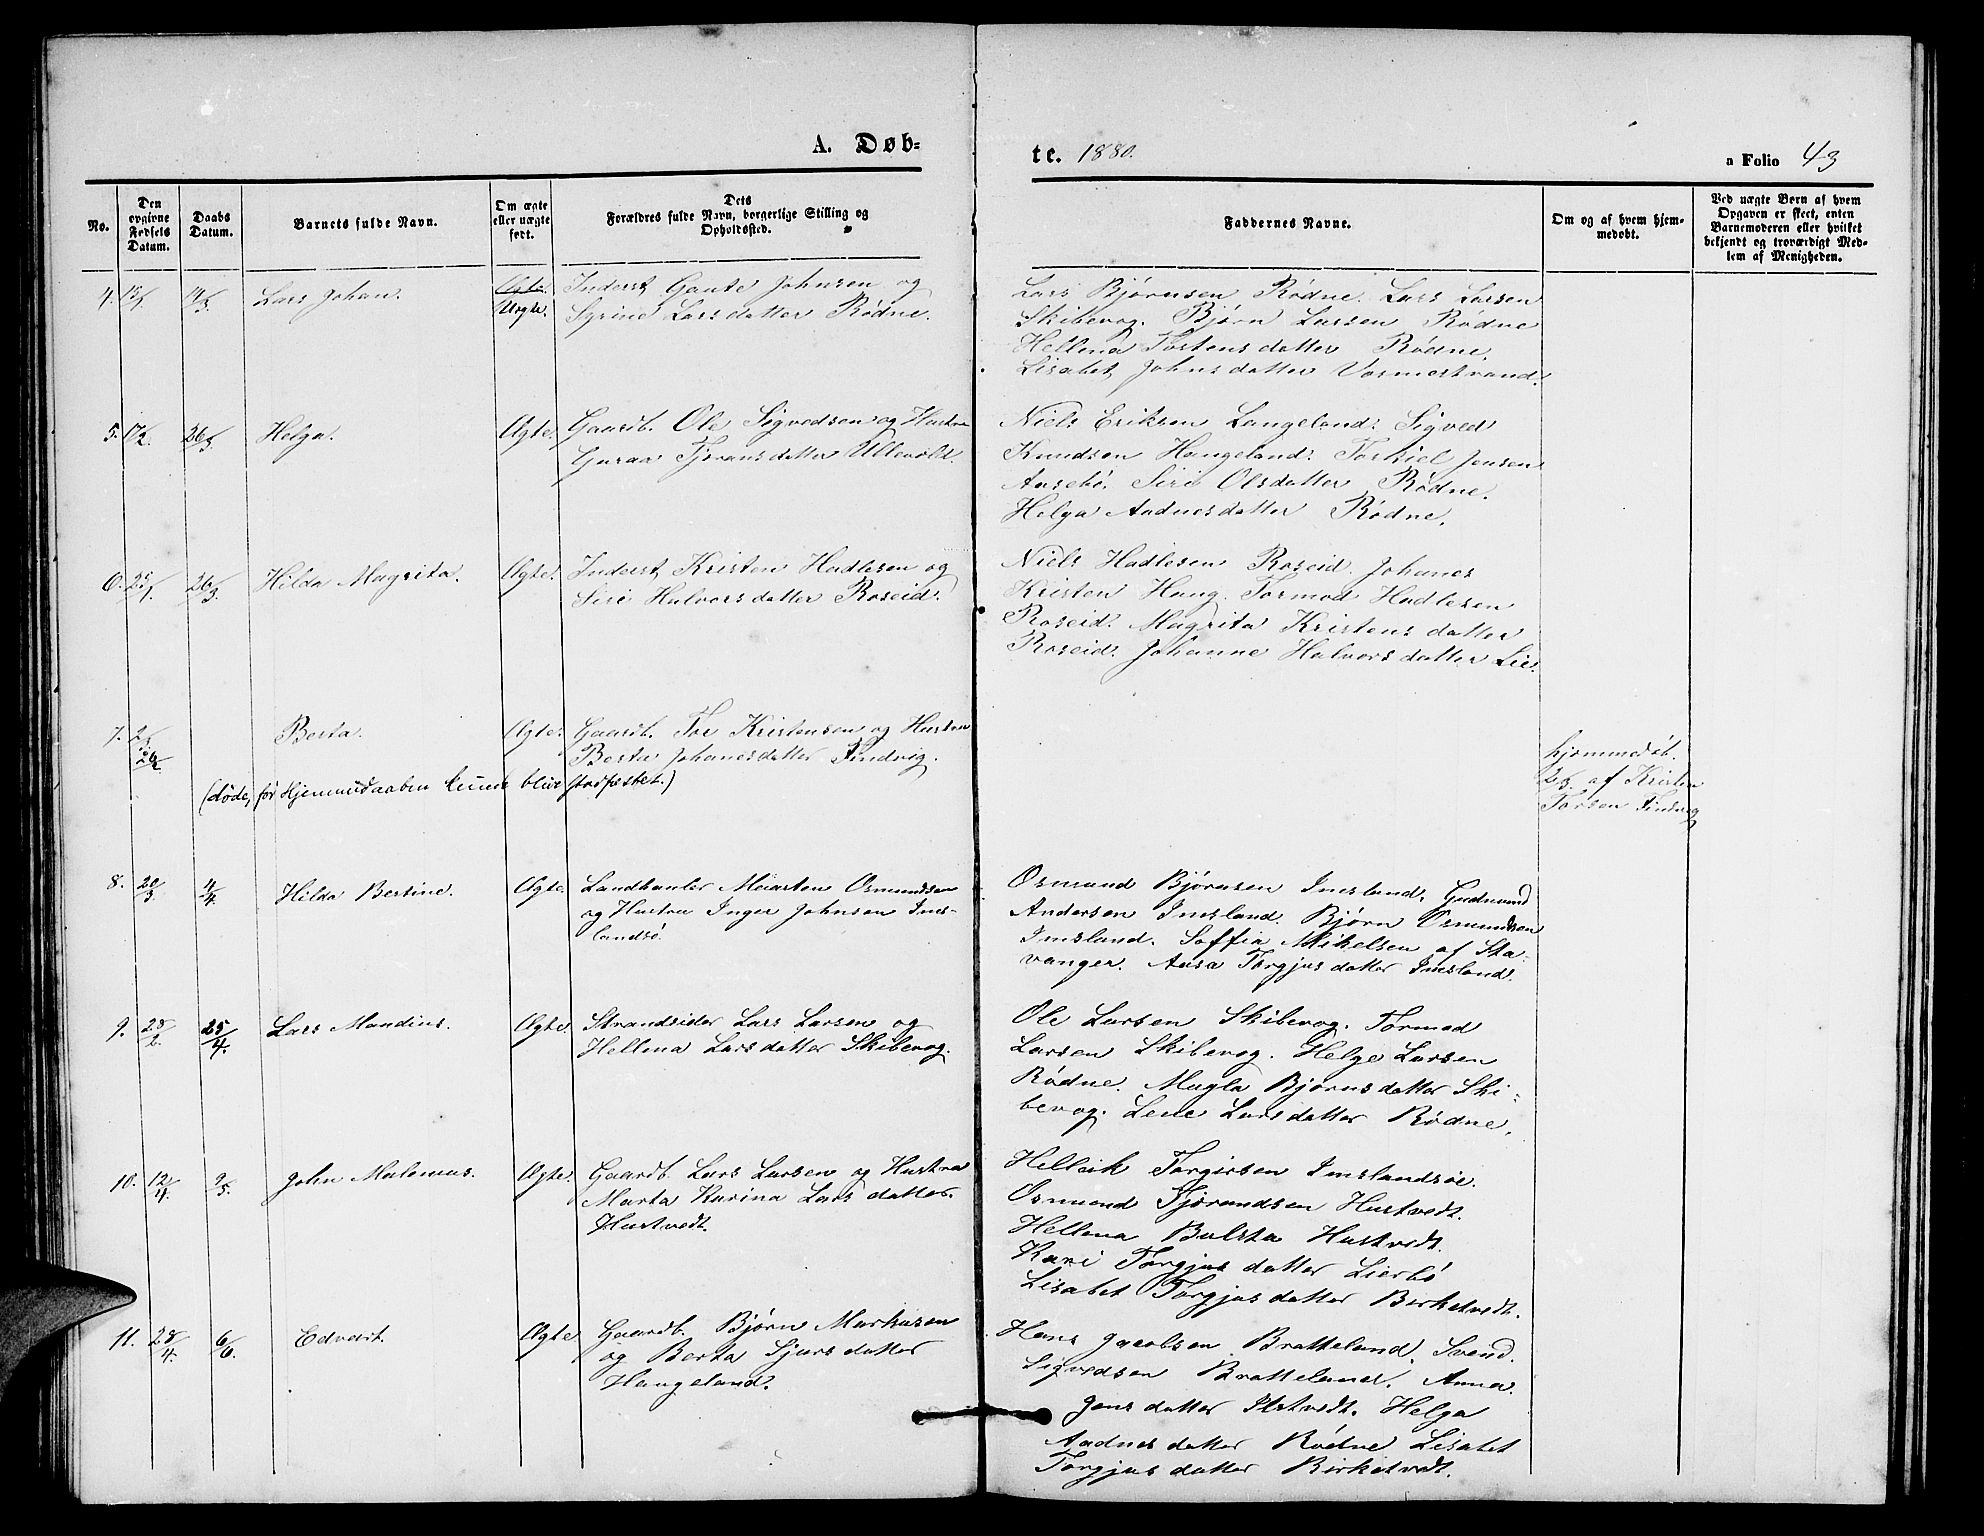 A. Døb-
te. 1880.
a Folio 43
No.
Den opgivne Fødsels Datum.
Daabs Datum.
Barnets fulde Navn.
Om ægte eller uægte født.
Dets Forældres fulde Navn, borgerlige Stilling og Opholdssted.
Faddernes Navne.
Om og af hvem hjemmedøbt.
Ved uægte Børn af hvem Opgaven er skeet, enten Barnemoderen eller hvilket bekjendt og troværdigt Medlem af Menigheden.
4. 14/3 Lars Johan. Ægte. Inderst Gaute Johnsen og
Uægte. Syrine Larsdatter Rødne.
Lars Bjørnsen Rødne. Lars Larsen
Skibevog. Bjørn Larsen Rødne
Hellena Tostensdatter Rødne.
Lisabet Johnsdatter Varmestrand.
5. 26/3 Helga. Ægte. Gaardb. Ole Sigvedsen og Hustru
Guraa Tjøransdatter Ullevold.
Niels Eriksen Langeland. Sigved
Knudsen Haugeland. Torkiel Jensen
Aasebö. Siri Olsdatter Rødne.
Helga Aadnesdatter Rødne.
6. 25/1. 26/3 Hilda Magrita. Ægte. Inderst Kristen Hadlesen og
Siri Halvorsdatter Roseid.
Niels Hadlesen Roseid. Johanes
Kristen Haug. Tormod Hadlesen
Roseid. Magrita Kristensdatter
Roseid. Johanne Halvorsdatter Lie.
7. Berta. Ægte. Gaardb. Tor Kristensen og Hustru
Berta Johanesdatter Tindvig.
(døde, før Hjemmedaaben kunde blive stadfæstet.)
hjemmedöbt
2/3. af Kristen
Torsen Tindvig
8. 20/3 4/4 Hilda Bertine. Ægte. Landhanler Meiarten Osmundsen
og Hustru Inger Johnsen Ims-
landsö.
Osmund Bjørnsen Imsland. Gudmund
Andersen Imsland. Bjørn Osmundsen
Imsland. Soffia Mikelsen af Sta-
vanger. Aasa Torgjusdatter Imsland.
9. 28/2. 25/4. Lars Mandius. Ægte. Strandsider Lars Larsen og
Hellena Larsdatter Skibevog.
Ole Larsen Skibevog. Tormod
Larsen Skibevog. Helge Larsen
Rødne. Magla Bjørnsdatter Ski-
bevog. Lene Larsdatter Rødne.
10. 12/4. 9/5. John Malenius. Ægte. Gaardb. Lars Larsen og Hustru
Marta Karina Larsdatter.
Hustvedt.
Helleik Torgiersen Imslandsöe.
Osmund Tjørandsen Hustvedt.
Hellena Balsta Hustvedt.
Kari Torgjusdatter Lierbö
Lisabet Torgjusdatter Birketvedt.
11. 28/4. 6/6. Edvart. Ægte Gaardb. Bjørn Markusen
og Berta Sjursdatter
Haugeland.
Hans Jacobsen Bratteland. Svend.
Sigvedsen Bratteland. Anna
Jensdatter Ilstvedt. Helga
Aadnesdatter Rødne Lisabet
Torgjusdatter Birketvedt.